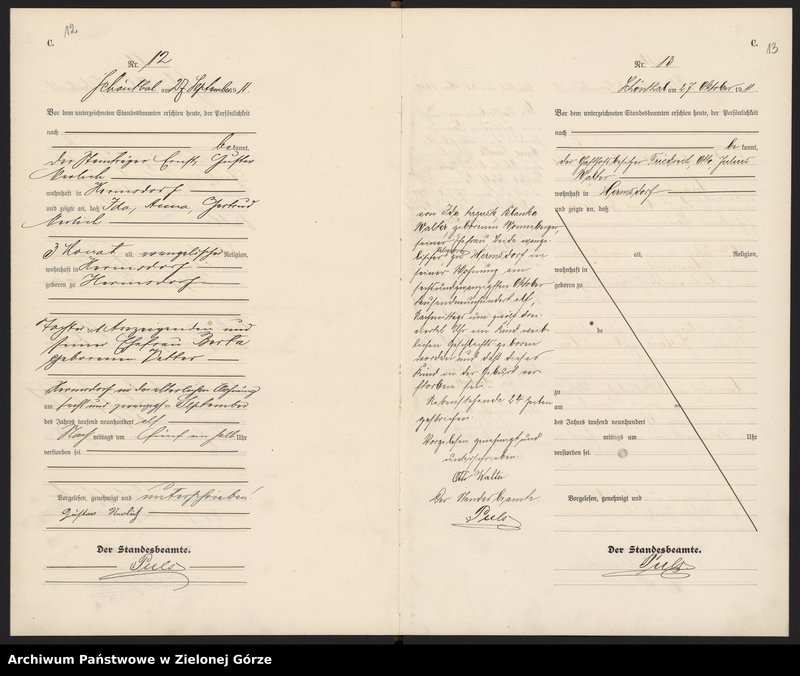 12
C.
Nr. 12
Schönthal am 27 September 19 11
Vor dem unterzeichneten Standesbeamten erschien heute, der Persönlichkeit
nach
be kannt,
der Ernst, Gustav
wohnhaft in Hermsdorf
und zeigte an, daß Ida, Anna, Gertrud
3 Monat alt, evangelischer Religion,
wohnhaft in Hermsdorf
geboren zu Hermsdorf
Tochter des Anzeigenden und
seiner Ehefrau
geborenen
Hermsdorf in der elterlichen Wohnung
am sechs und zwanzigsten September
des Jahres tausend neunhundert elf
Nach mittags um fünf ein halb Uhr
verstorben sei.
Vorgelesen, genehmigt und unterschrieben
Gustav
Der Standesbeamte.
Puls
13
C.
Nr. 13
Schönthal am 27 Oktober 19 11
Vor dem unterzeichneten Standesbeamten erschien heute, der Persönlichkeit
nach
be kannt,
der Otto Julius
Walter
wohnhaft in Hermsdorf
und zeigte an, daß
von Ida
Walter, geborenen
seiner Ehefrau
zu Hermsdorf in
seiner Wohnung am
sechsundzwanzigsten Oktober
tausendneunhundert elf,
Nachmittags um drei
viertel Uhr ein Kind weib
lichen Geschlechts geboren
worden und daß dieses
Kind in der Geburt ver
storben sei.
Nebenstehende 22 Zeilen
gestrichen.
Vorgelesen genehmigt und
unterschrieben
Otto Walter
Der Standesbeamte.
Puls
alt, Religion,
wohnhaft in
geboren zu
de
zu
am
des Jahres tausend neunhundert
mittags um Uhr
verstorben sei.
Vorgelesen, genehmigt und
Der Standesbeamte.
Puls
Archiwum Państwowe w Zielonej Górze